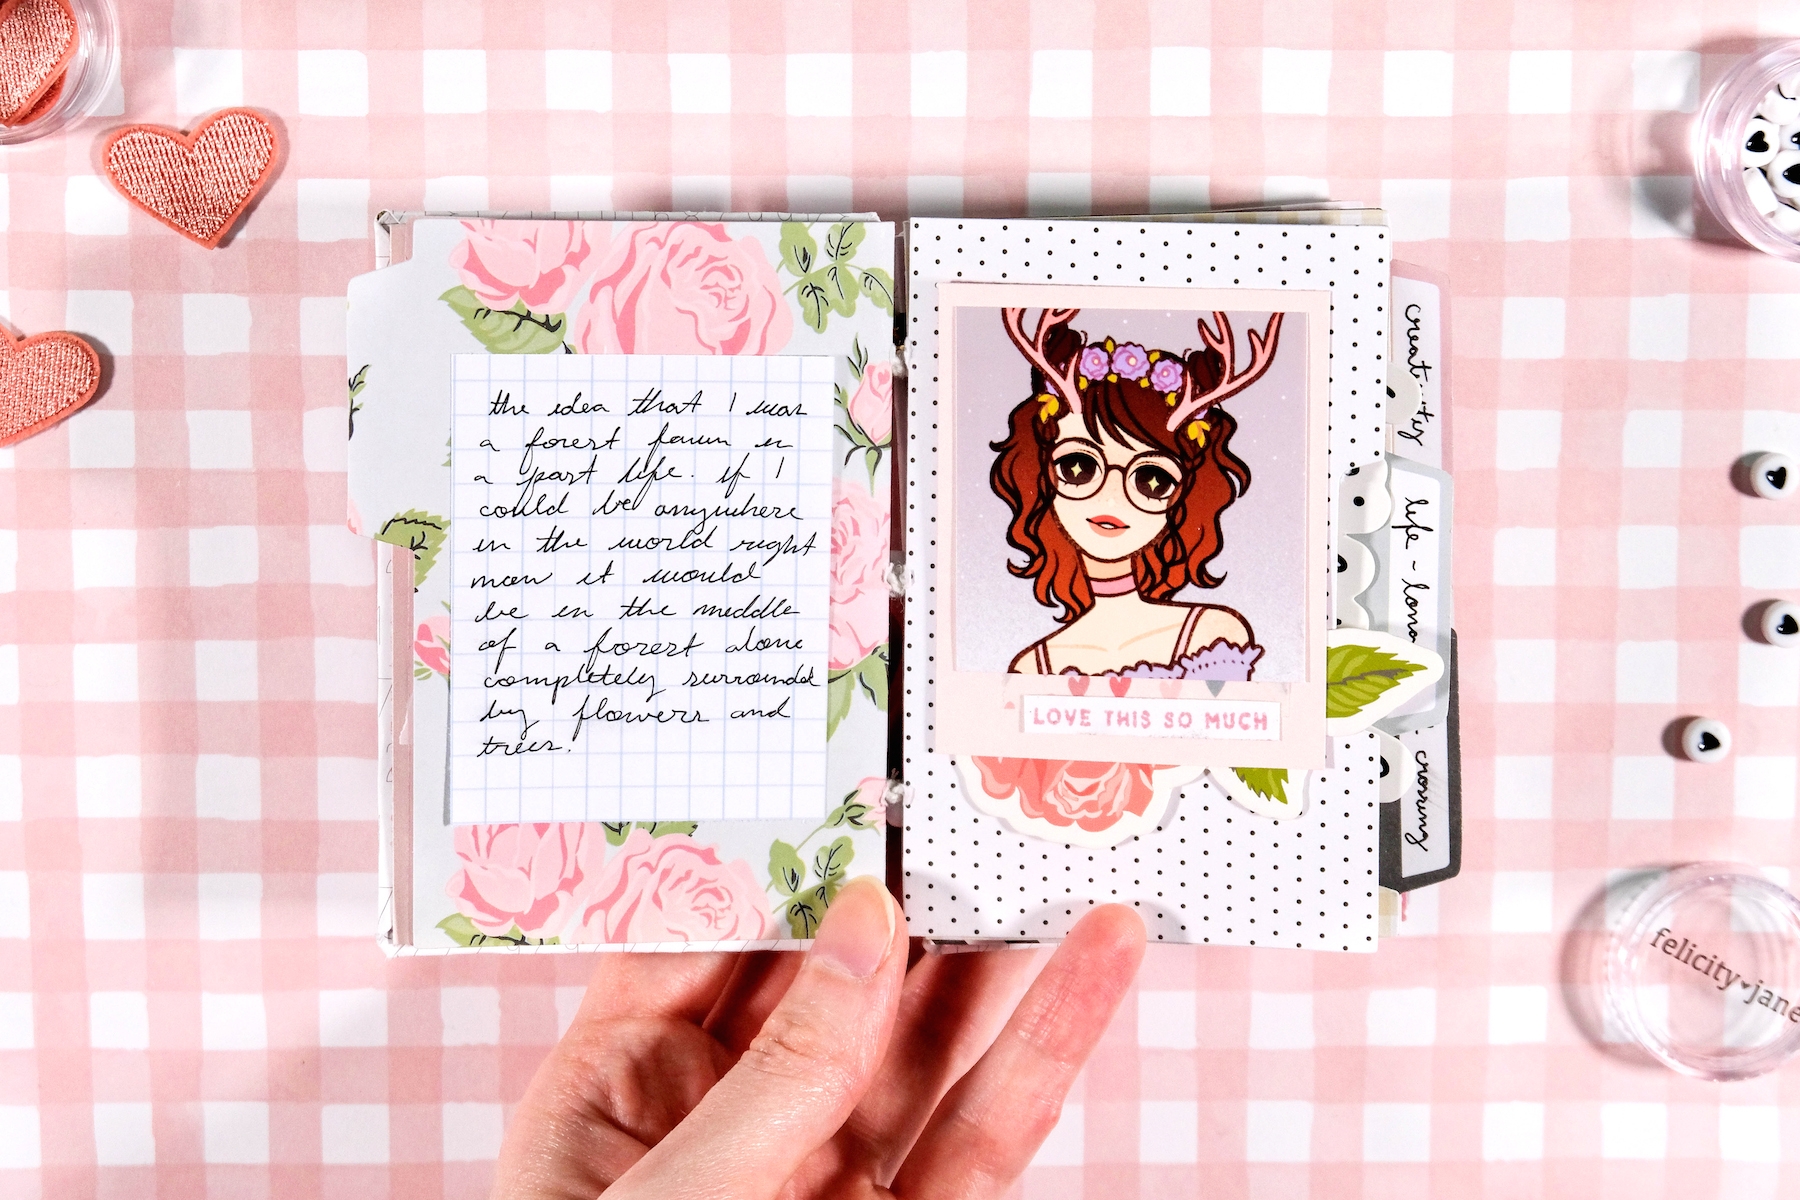 the idea that I was
a forest fawn in
a past life. if I
could be anywhere
in the world right
now it would
be in the middle
of a forest alone
completely surrounded
by flowers and
trees.
LOVE THIS SO MUCH
creativity
life - long
crossing
felicity♥jane